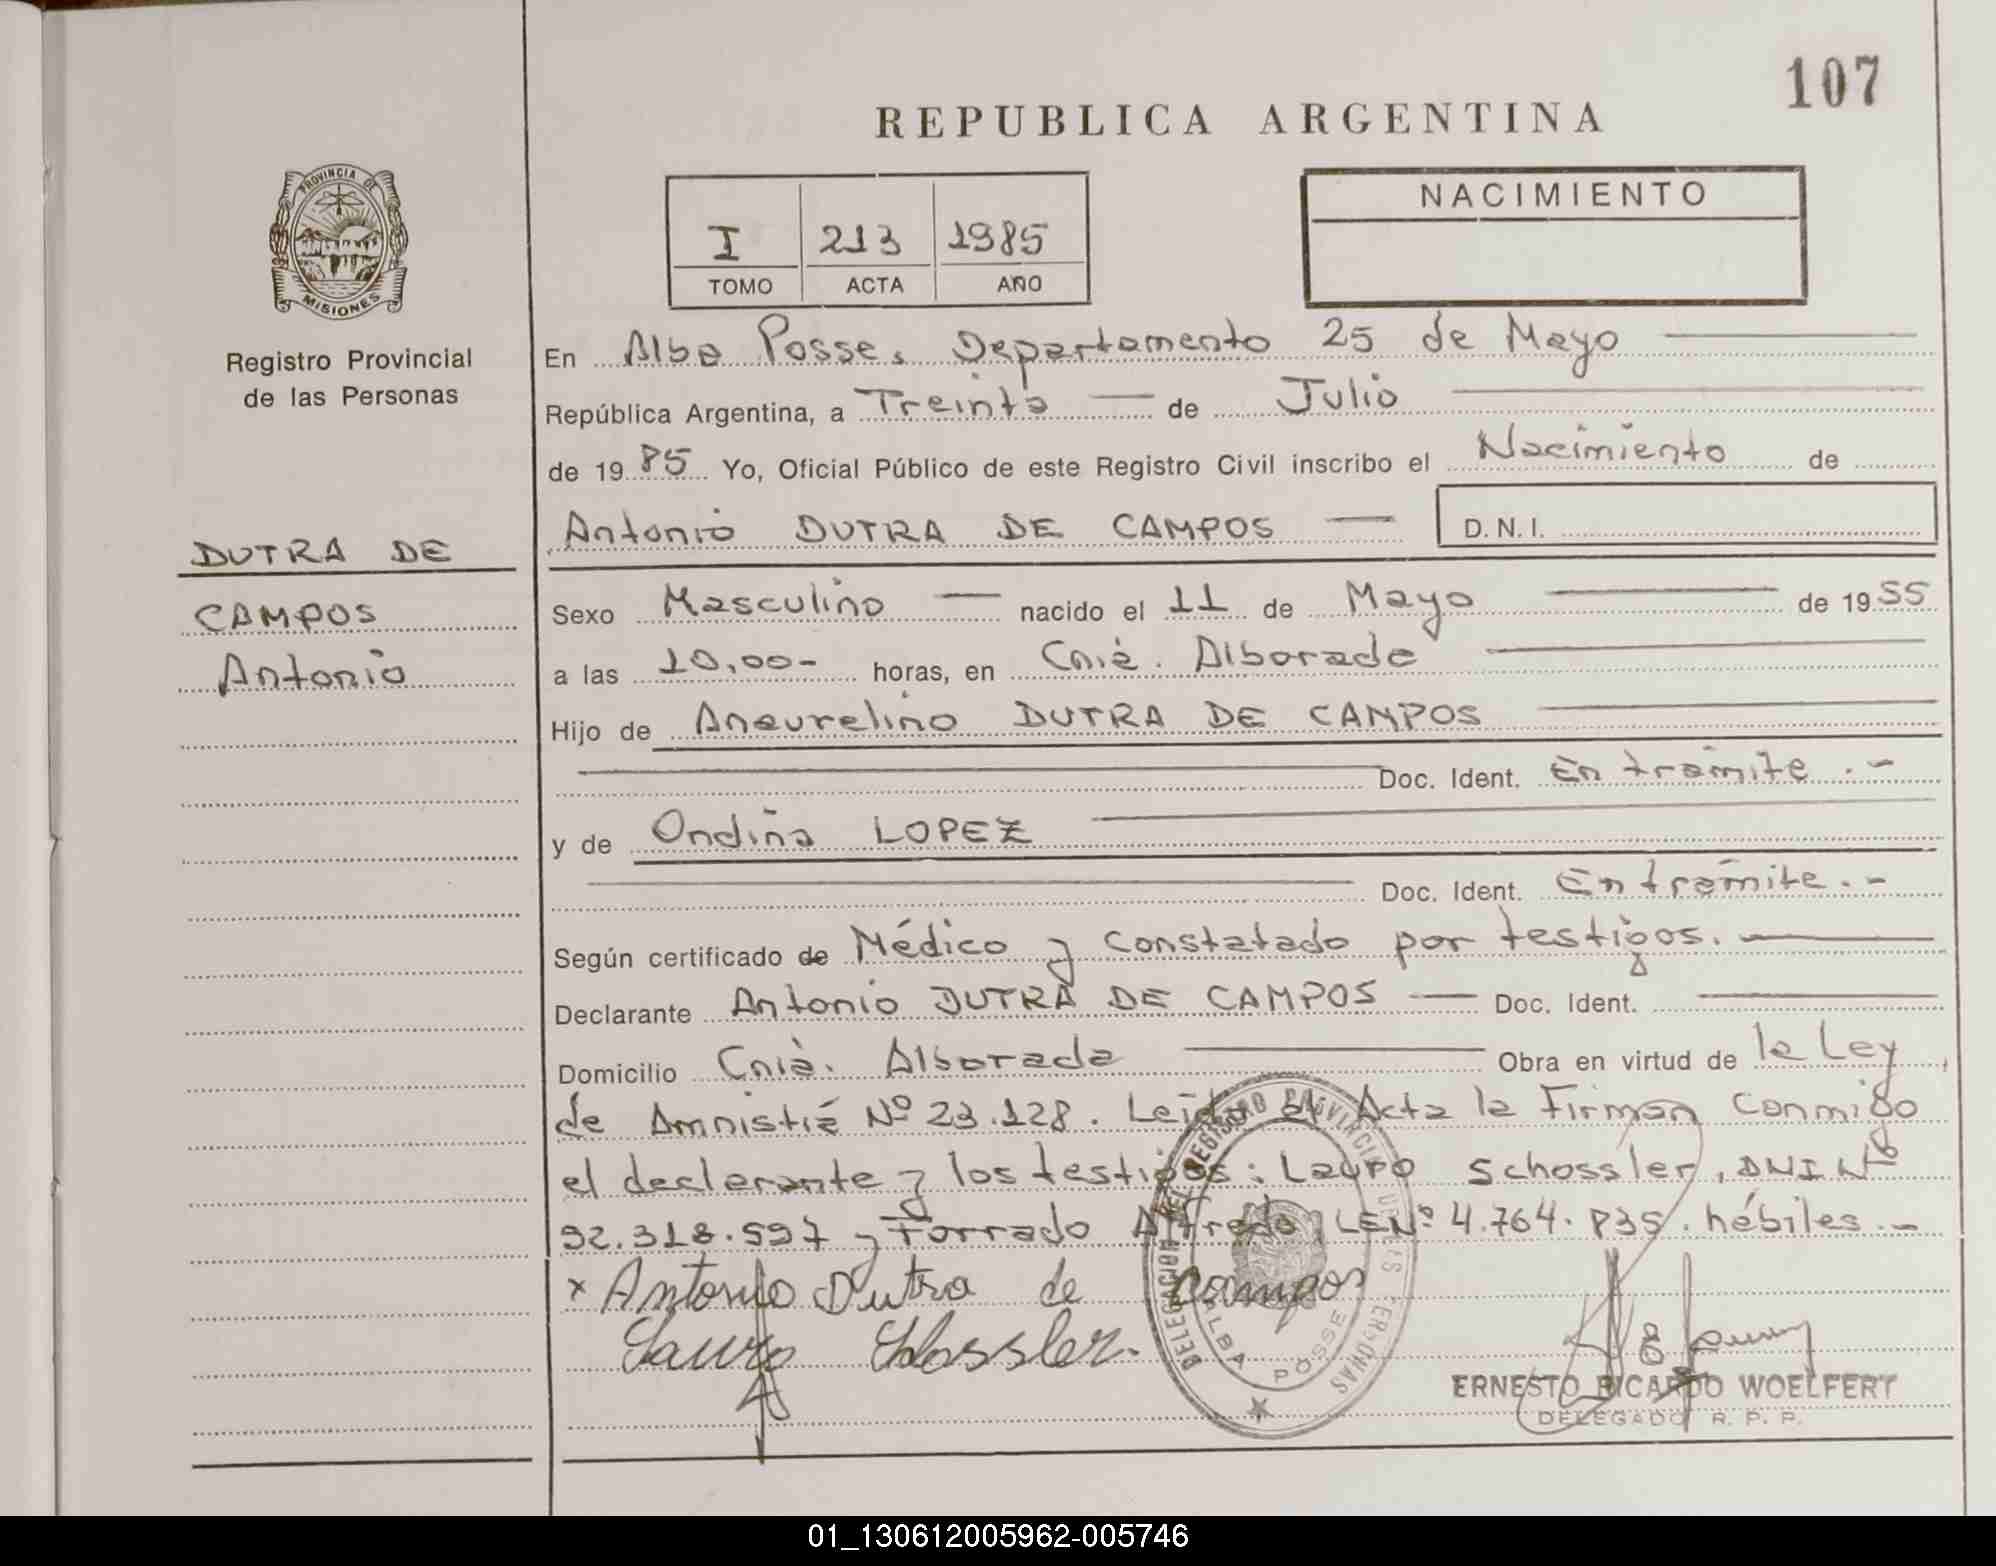 107
REPUBLICA ARGENTINA
PROVINCIA DE MISIONES
Registro Provincial
de las Personas
I 213 1985
TOMO ACTA AÑO
NACIMIENTO
En Alba Posse, Departamento 25 de Mayo
República Argentina, a Treinta de Julio
de 1985 Yo, Oficial Público de este Registro Civil inscribo el Nacimiento de
Antonio DUTRA DE CAMPOS D.N.I.
DUTRA DE
CAMPOS
Antonio
Sexo Masculino nacido el 11 de Mayo de 1955
a las 10,00- horas, en Cnia. Alborada
Hijo de Aneurelino DUTRA DE CAMPOS
Doc. Ident. En trámite.-
y de Ondina LOPEZ
Doc. Ident. En trámite.-
Según certificado de Médico y constatado por testigos.
Declarante Antonio DUTRA DE CAMPOS Doc. Ident.
Domicilio Cnia. Alborada Obra en virtud de la Ley
de Amnistía Nº 23.128. Leída el Acta la Firman conmigo
el declarante y los testigos: Lauro Schossler, DNI Nº
92.318.597 y Forrado Alfredo, LE Nº 4.764.835. hábiles.-
x Antonio Dutra de Campos
Lauro Schossler.
DELEGACION DEL REGISTRO PROVINCIAL DE LAS PERSONAS
ALBA POSSE
ERNESTO RICARDO WOELFERT
DELEGADO R. P. P.
01_130612005962-005746